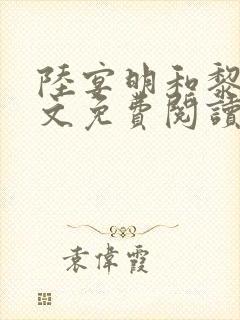 陸宴明和黎
文免費閱讀
袁偉霞